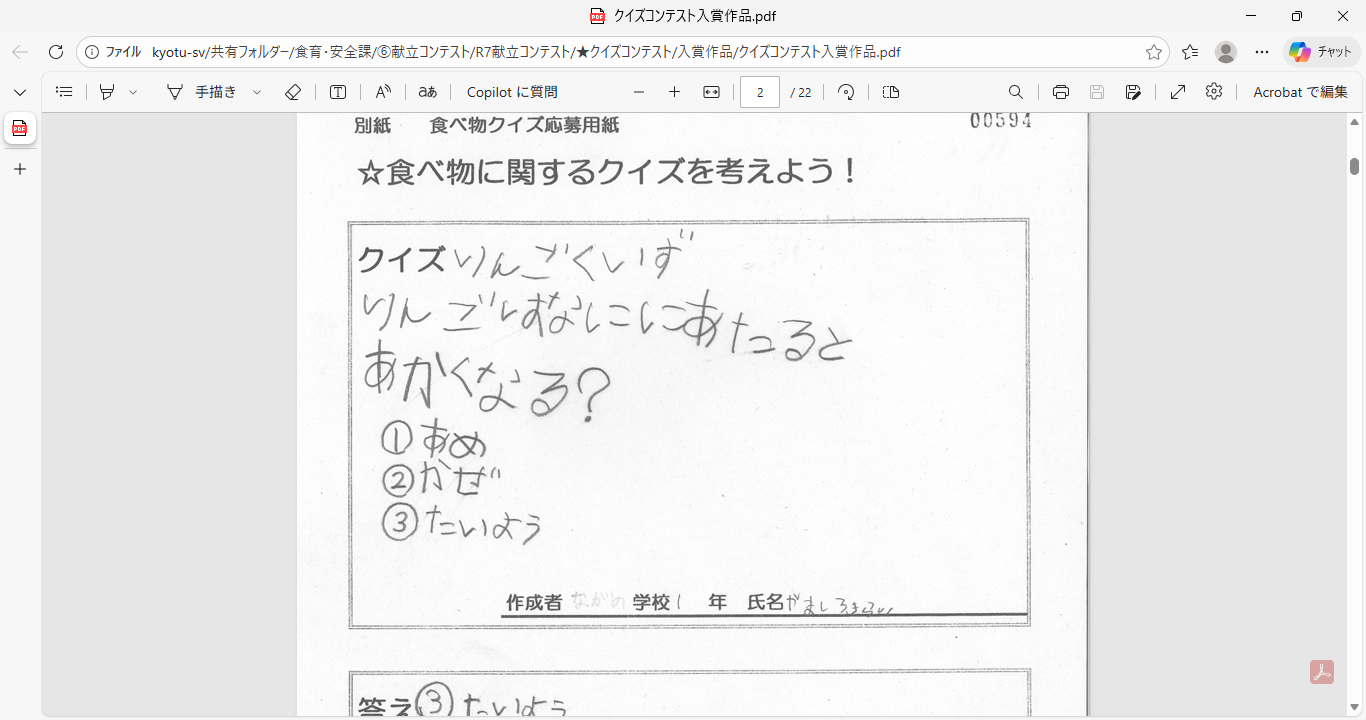 クイズコンテスト入賞作品.pdf
ファイル kyotu-sv/共有フォルダー/食育・安全課/⑥献立コンテスト/R7献立コンテスト/★クイズコンテスト/入賞作品/クイズコンテスト入賞作品.pdf
チャット
手描き aあ Copilot に質問 2 / 22 Acrobat で編集
別紙 食べ物クイズ応募用紙 00594
☆食べ物に関するクイズを考えよう！
クイズ りんごくいず
りんごはなににあたると
あかくなる？
①あめ
②かぜ
③たいよう
作成者 ながの 学校 1 年 氏名
答え ③ たいよう